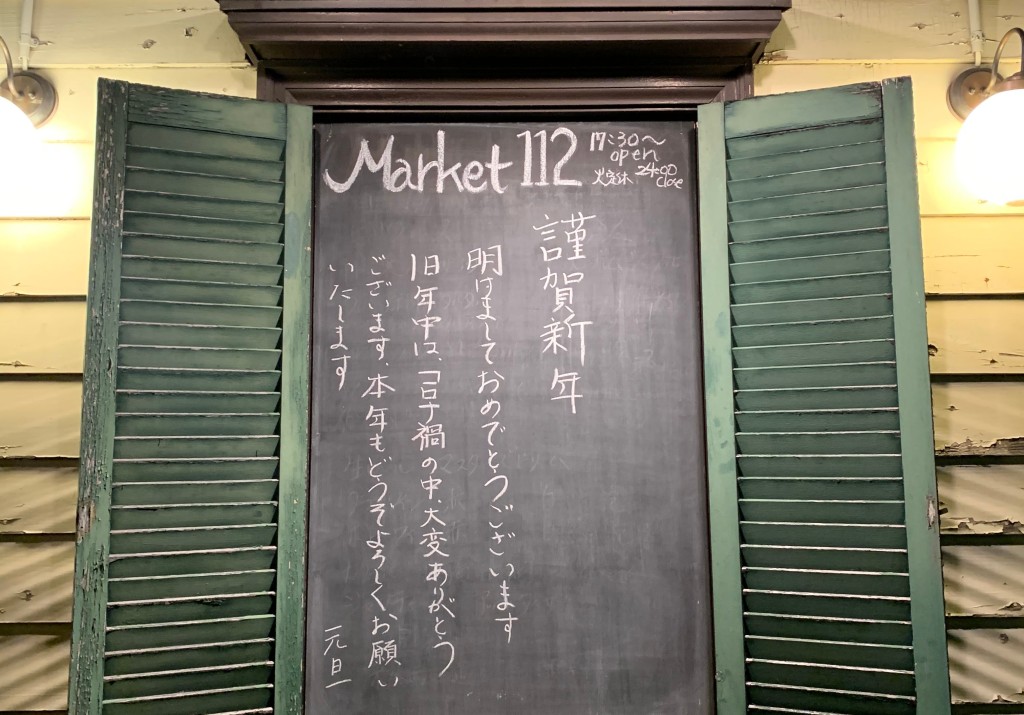 Market 112
17:30〜
open
24:00
close
火定休
謹賀新年
明けましておめでとうございます
旧年中は、コロナ禍の中、大変ありがとう
ございます、本年もどうぞよろしく、お願い
いたします
元旦